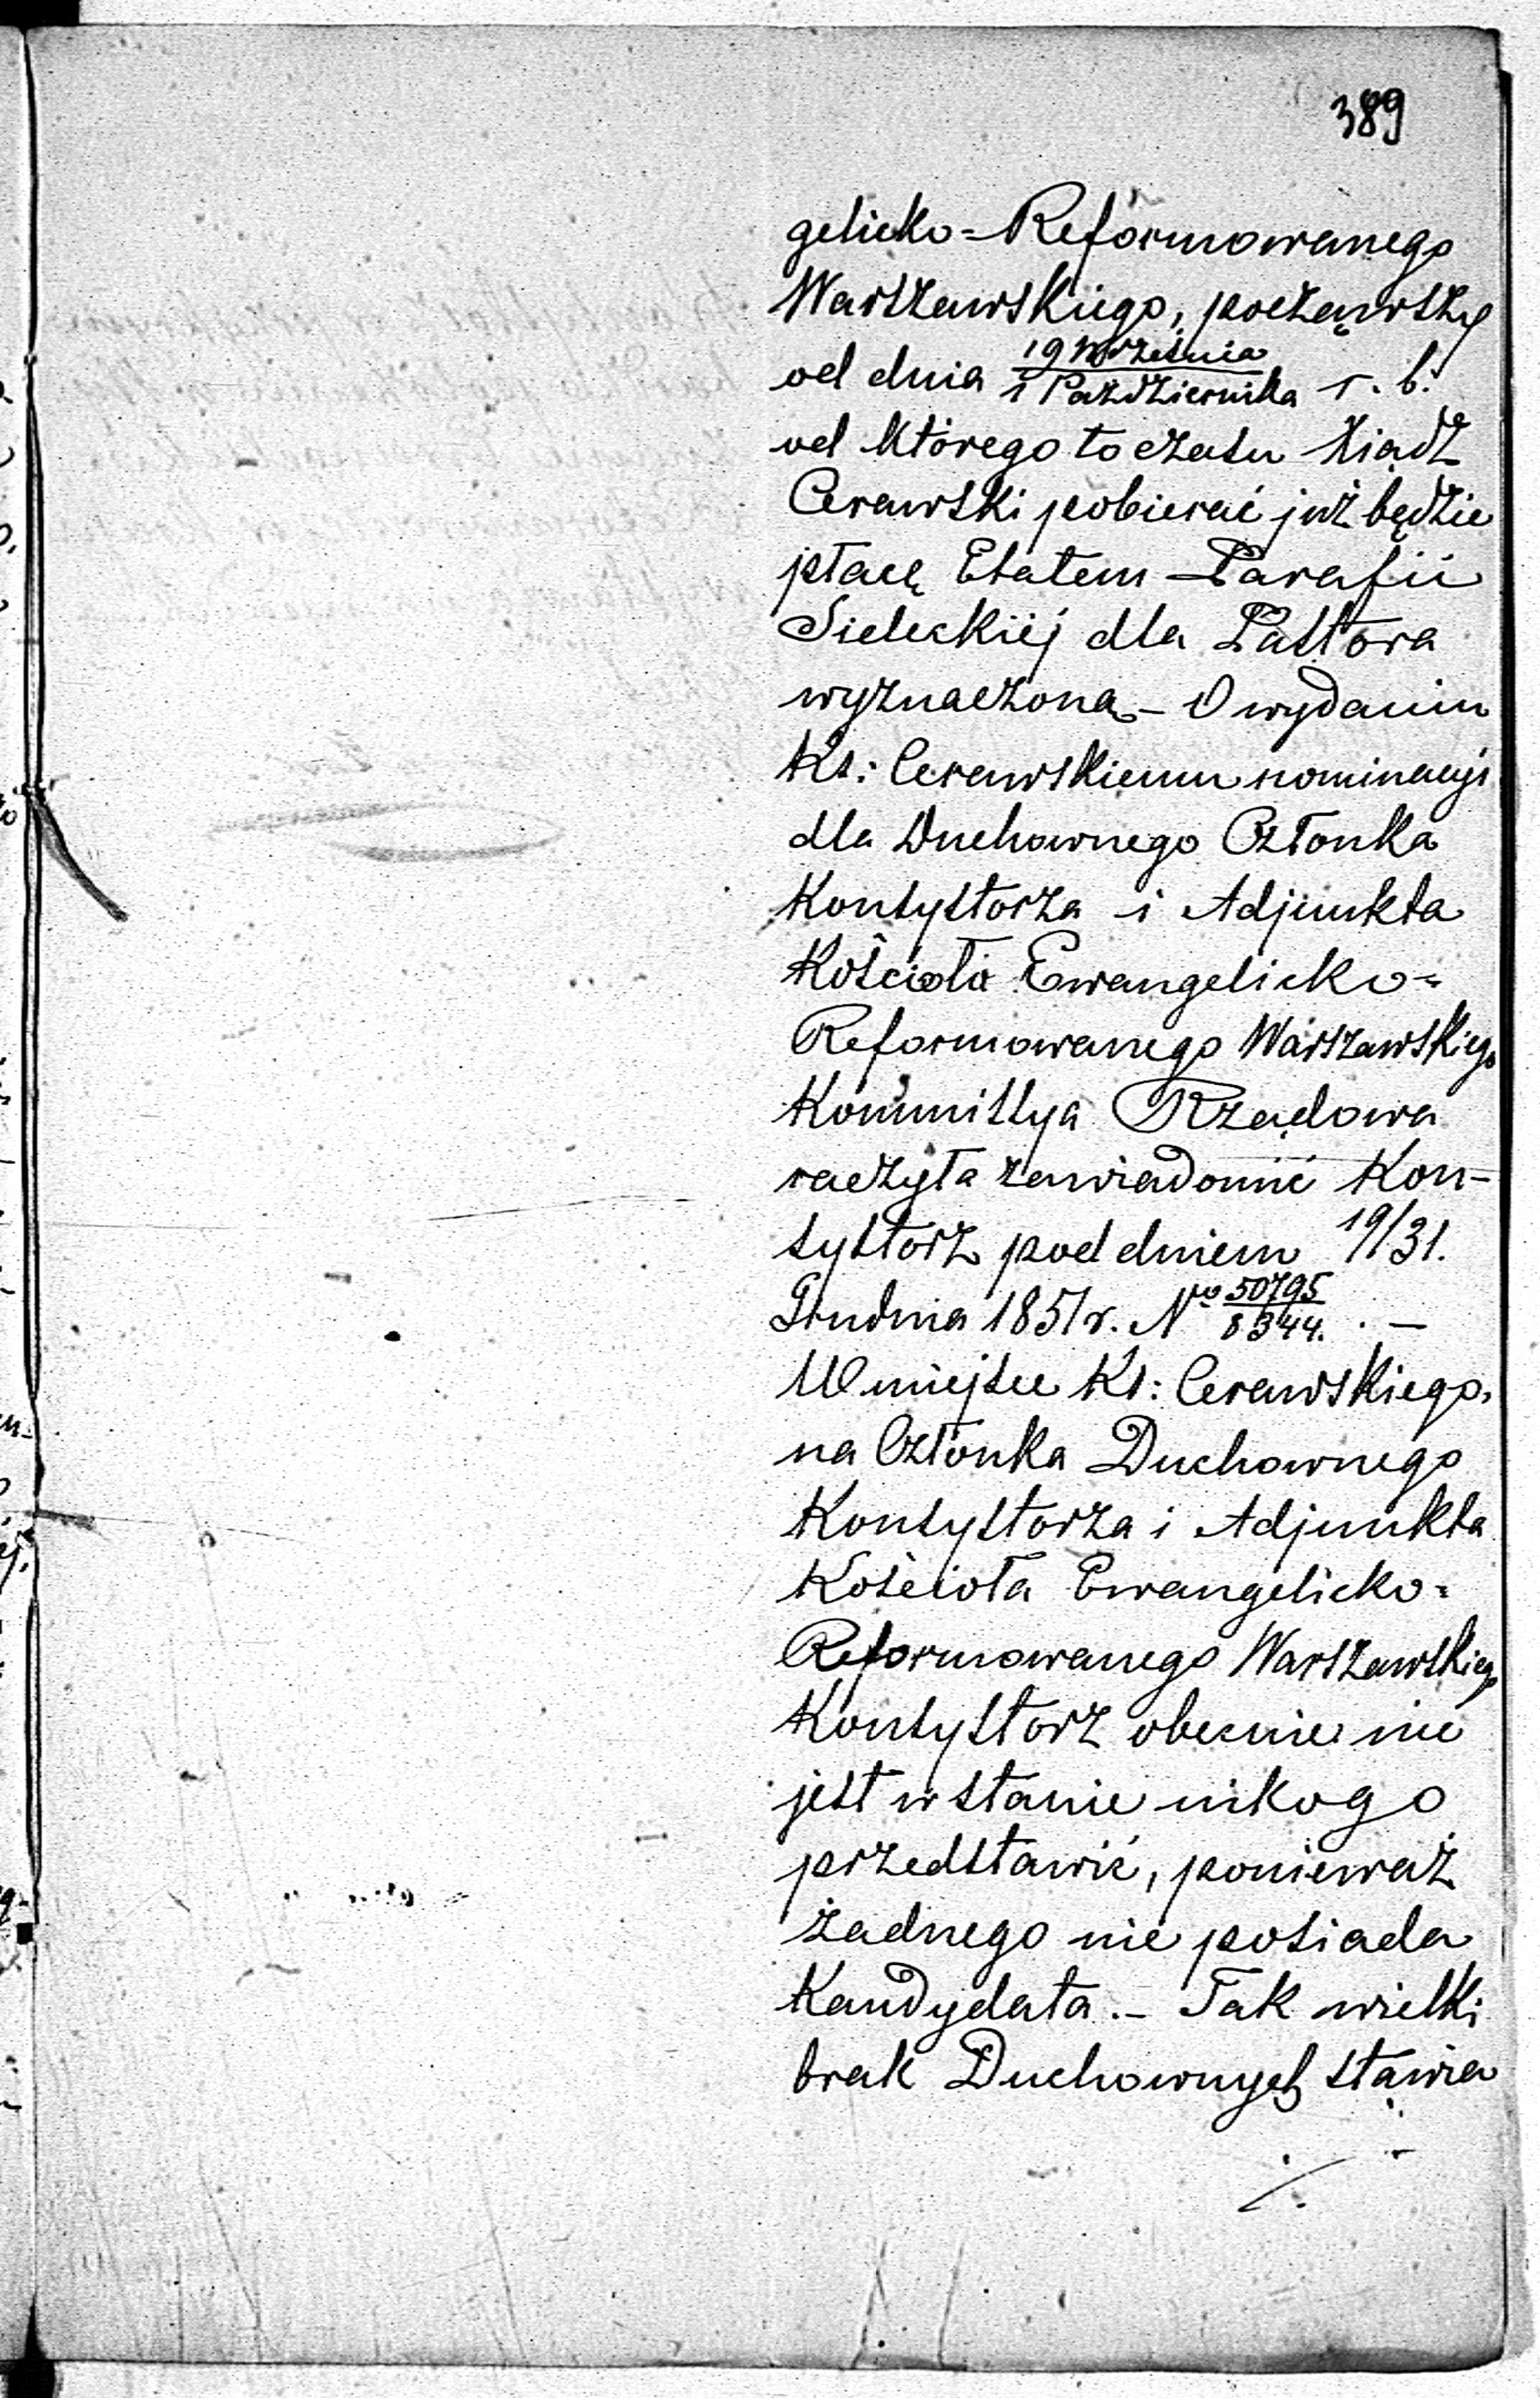 389
gelicko=Reformowanego
Warszawskiego, począwszy
od dnia 19 Września / 1 Października r. b.
od którego to czasu Xiądz
Cerawski pobierać już będzie
płacę Etatem Parafii
Sieleckiéj dla Pastora
wyznaczoną. – O wydaniu
Ks: Cerawskiemu nominacyi
dla Duchownego Członka
Konsystorza i Adjunkta
Kościoła Ewangelicko=
Reformowanego Warszawskiego
Kommissya Rządowa
raczyła zawiadomić Kon-
systorz pod dniem 19/31.
Grudnia 1851 r. No 50795/8344. –
W miejsce Ks: Cerawskiego,
na Członka Duchownego
Konsystorza i Adjunkta
Kościoła Ewangelicko=
Reformowanego Warszawskiego
Konsystorz obecnie nie
jest w stanie nikogo
przedstawić, ponieważ
żadnego nie posiada
Kandydata. – Tak wielki
brak Duchownych stawia